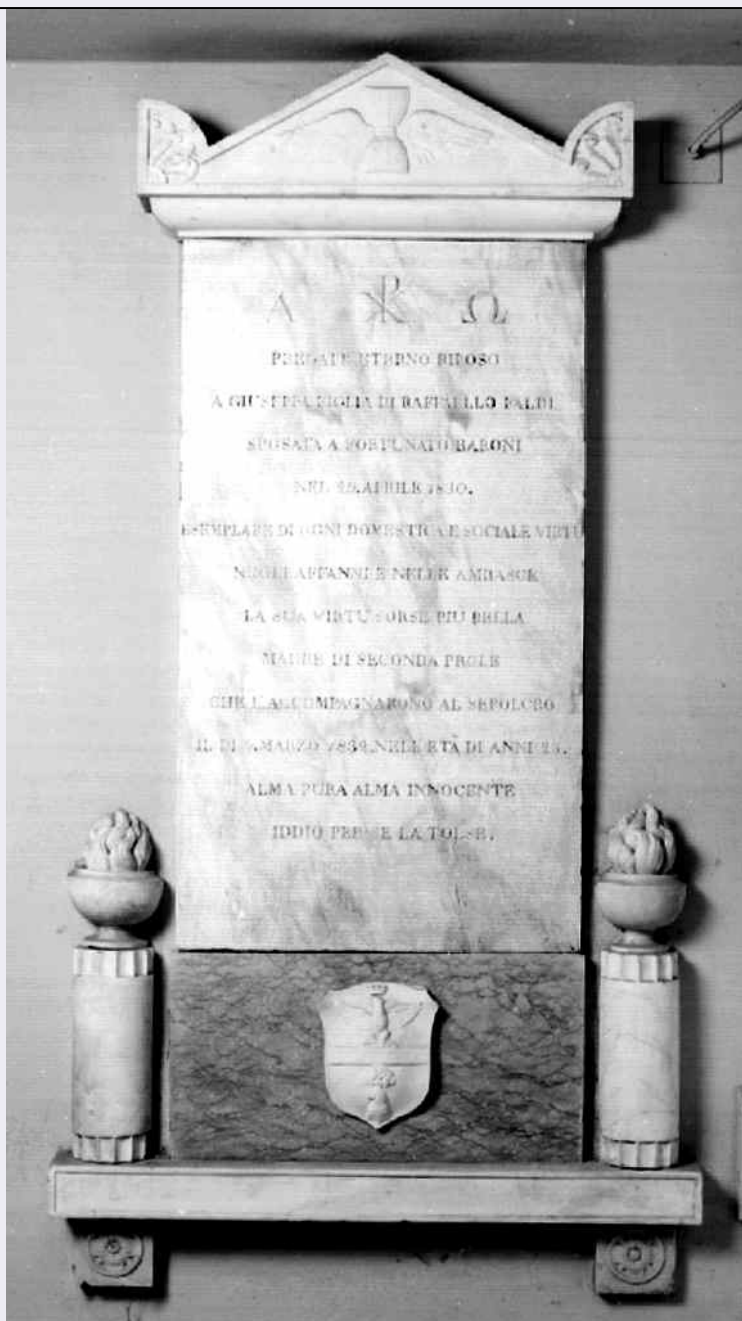 Α ☧ Ω
PREGATE ETERNO RIPOSO
A GIUSEPPA FIGLIA DI RAFFAELLO BALDI
SPOSATA A FORTUNATO BARONI
NEL APRILE 1830.
ESEMPLARE DI OGNI DOMESTICA E SOCIALE VIRTU
NEGLI AFFANNI E NELLE AMBASCE
LA SUA VIRTU SORSE PIU BELLA
MADRE DI SECONDA PROLE
CHE L'ACCOMPAGNARONO AL SEPOLCRO
IL DI MARZO NELL'ETÀ DI ANNI
ALMA PURA ALMA INNOCENTE
IDDIO PER SE LA TOLSE.